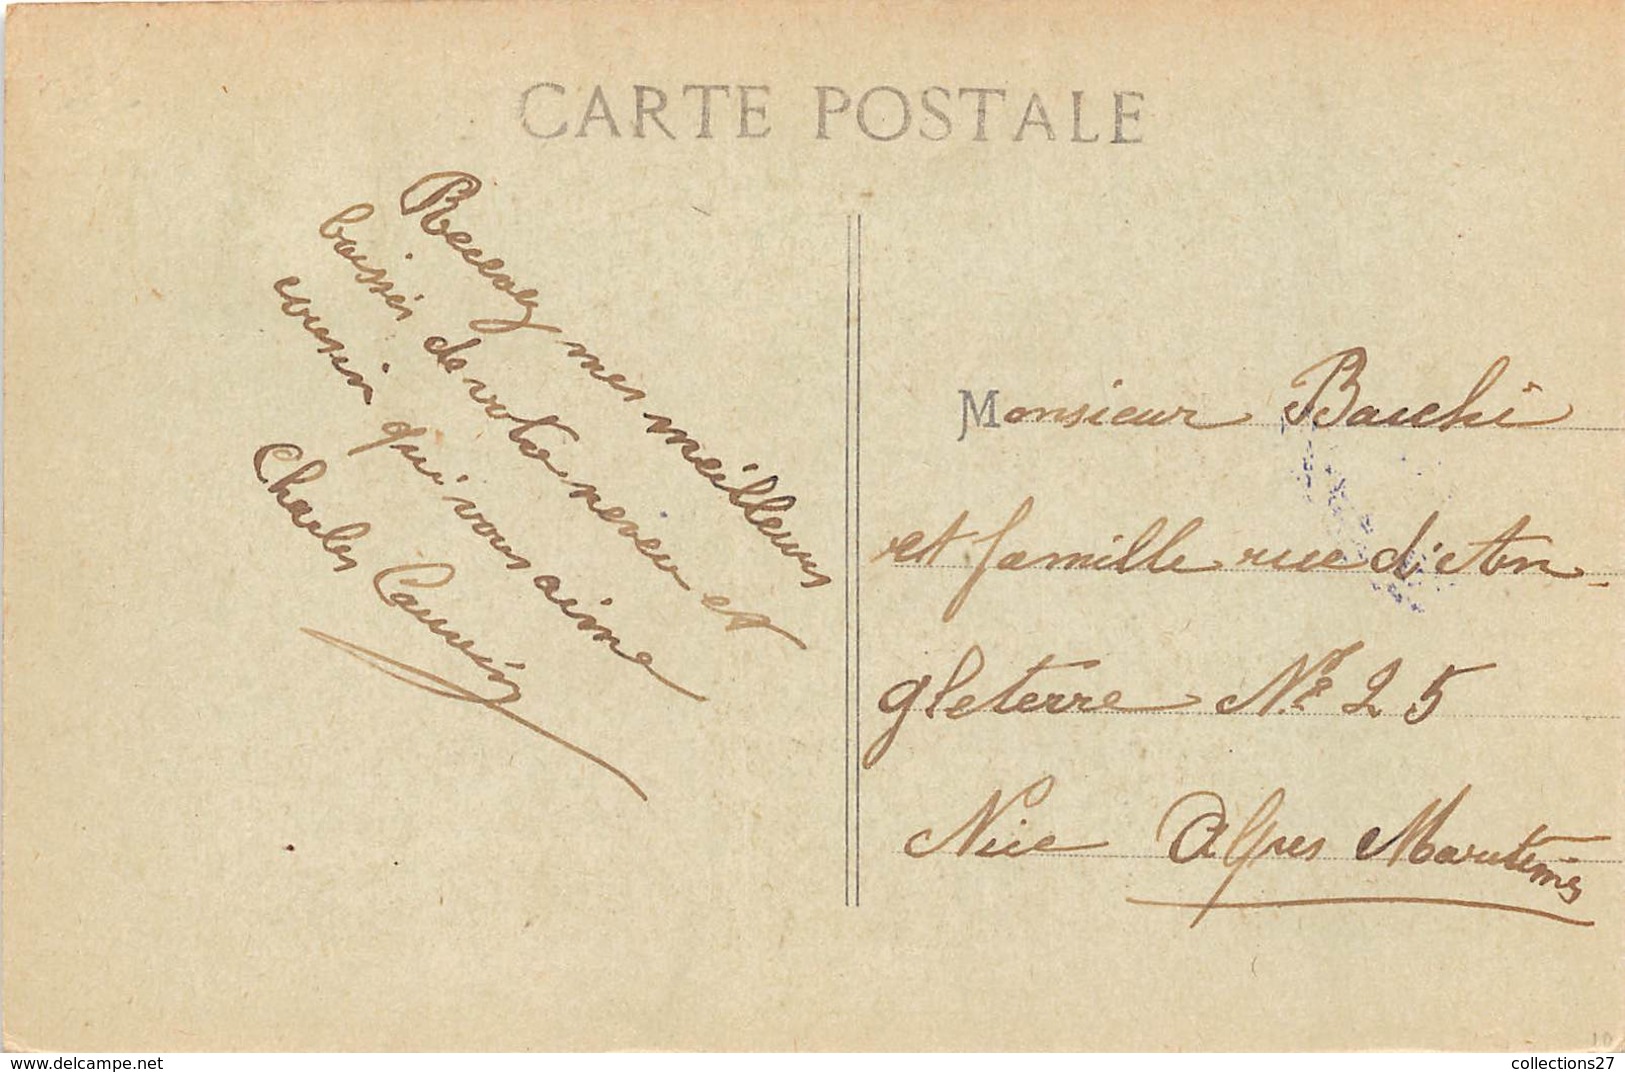 CARTE POSTALE
Recevez mes meilleurs
baisers de votre neveu et
cousin qui vous aime
Charles
Monsieur
et famille rue d'An-
gleterre No 25
Nice Alpes Maritimes
www.delcampe.net
collections27